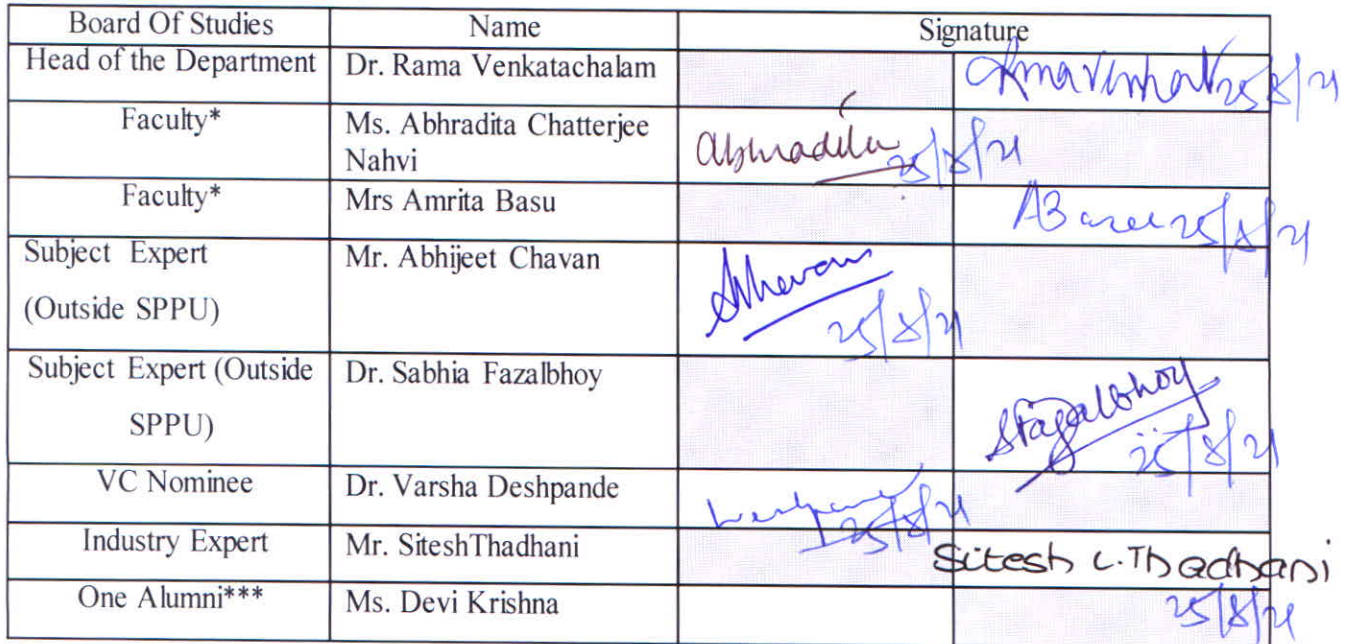 Board Of Studies Name Signature
Head of the Department Dr. Rama Venkatachalam 25/8/21
Faculty* Ms. Abhradita Chatterjee
Nahvi Abhradita 25/8/21
Faculty* Mrs Amrita Basu ABasu 25/8/21
Subject Expert Mr. Abhijeet Chavan
(Outside SPPU) 25/8/21
Subject Expert (Outside Dr. Sabhia Fazalbhoy SFazalbhoy
SPPU) 25/8/21
VC Nominee Dr. Varsha Deshpande 25/8/21
Industry Expert Mr. SiteshThadhani Sitesh L. Thadhani
One Alumni*** Ms. Devi Krishna 25/8/21